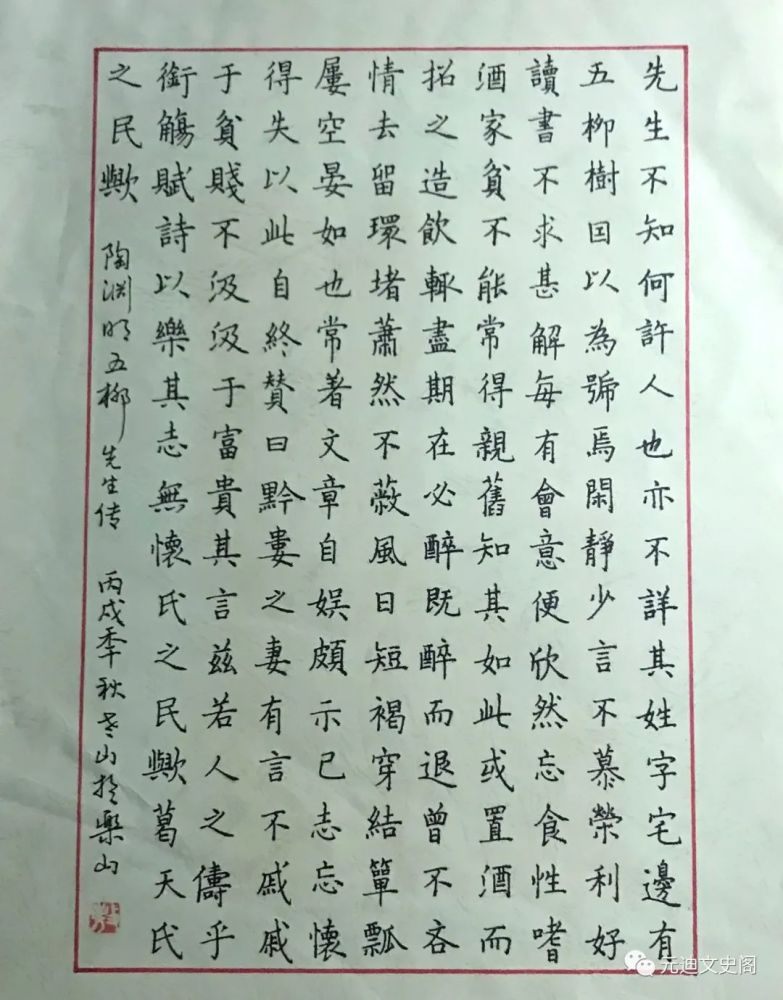 先生不知何許人也亦不詳其姓字宅邊有
五柳樹囙以為號焉閑靜少言不慕榮利好
讀書不求甚解每有會意便欣然忘食性嗜
酒家貧不能常得親舊知其如此或置酒而
招之造飲輒盡期在必醉既醉而退曾不吝
情去留環堵蕭然不蔽風日短褐穿結簞瓢
屢空晏如也常著文章自娛頗示己志忘懷
得失以此自終贊曰黔婁之妻有言不戚戚
于貧賤不汲汲于富貴其言茲若人之儔乎
銜觴賦詩以樂其志無懷氏之民歟葛天氏
之民歟 陶渊明五柳先生传 丙戌季秋老山扵樂山
元迪文史阁